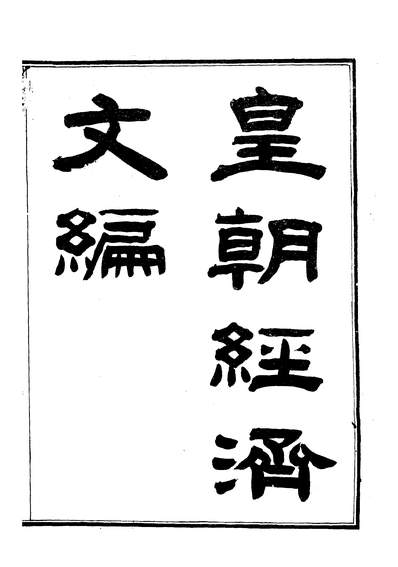 皇朝經濟
文編